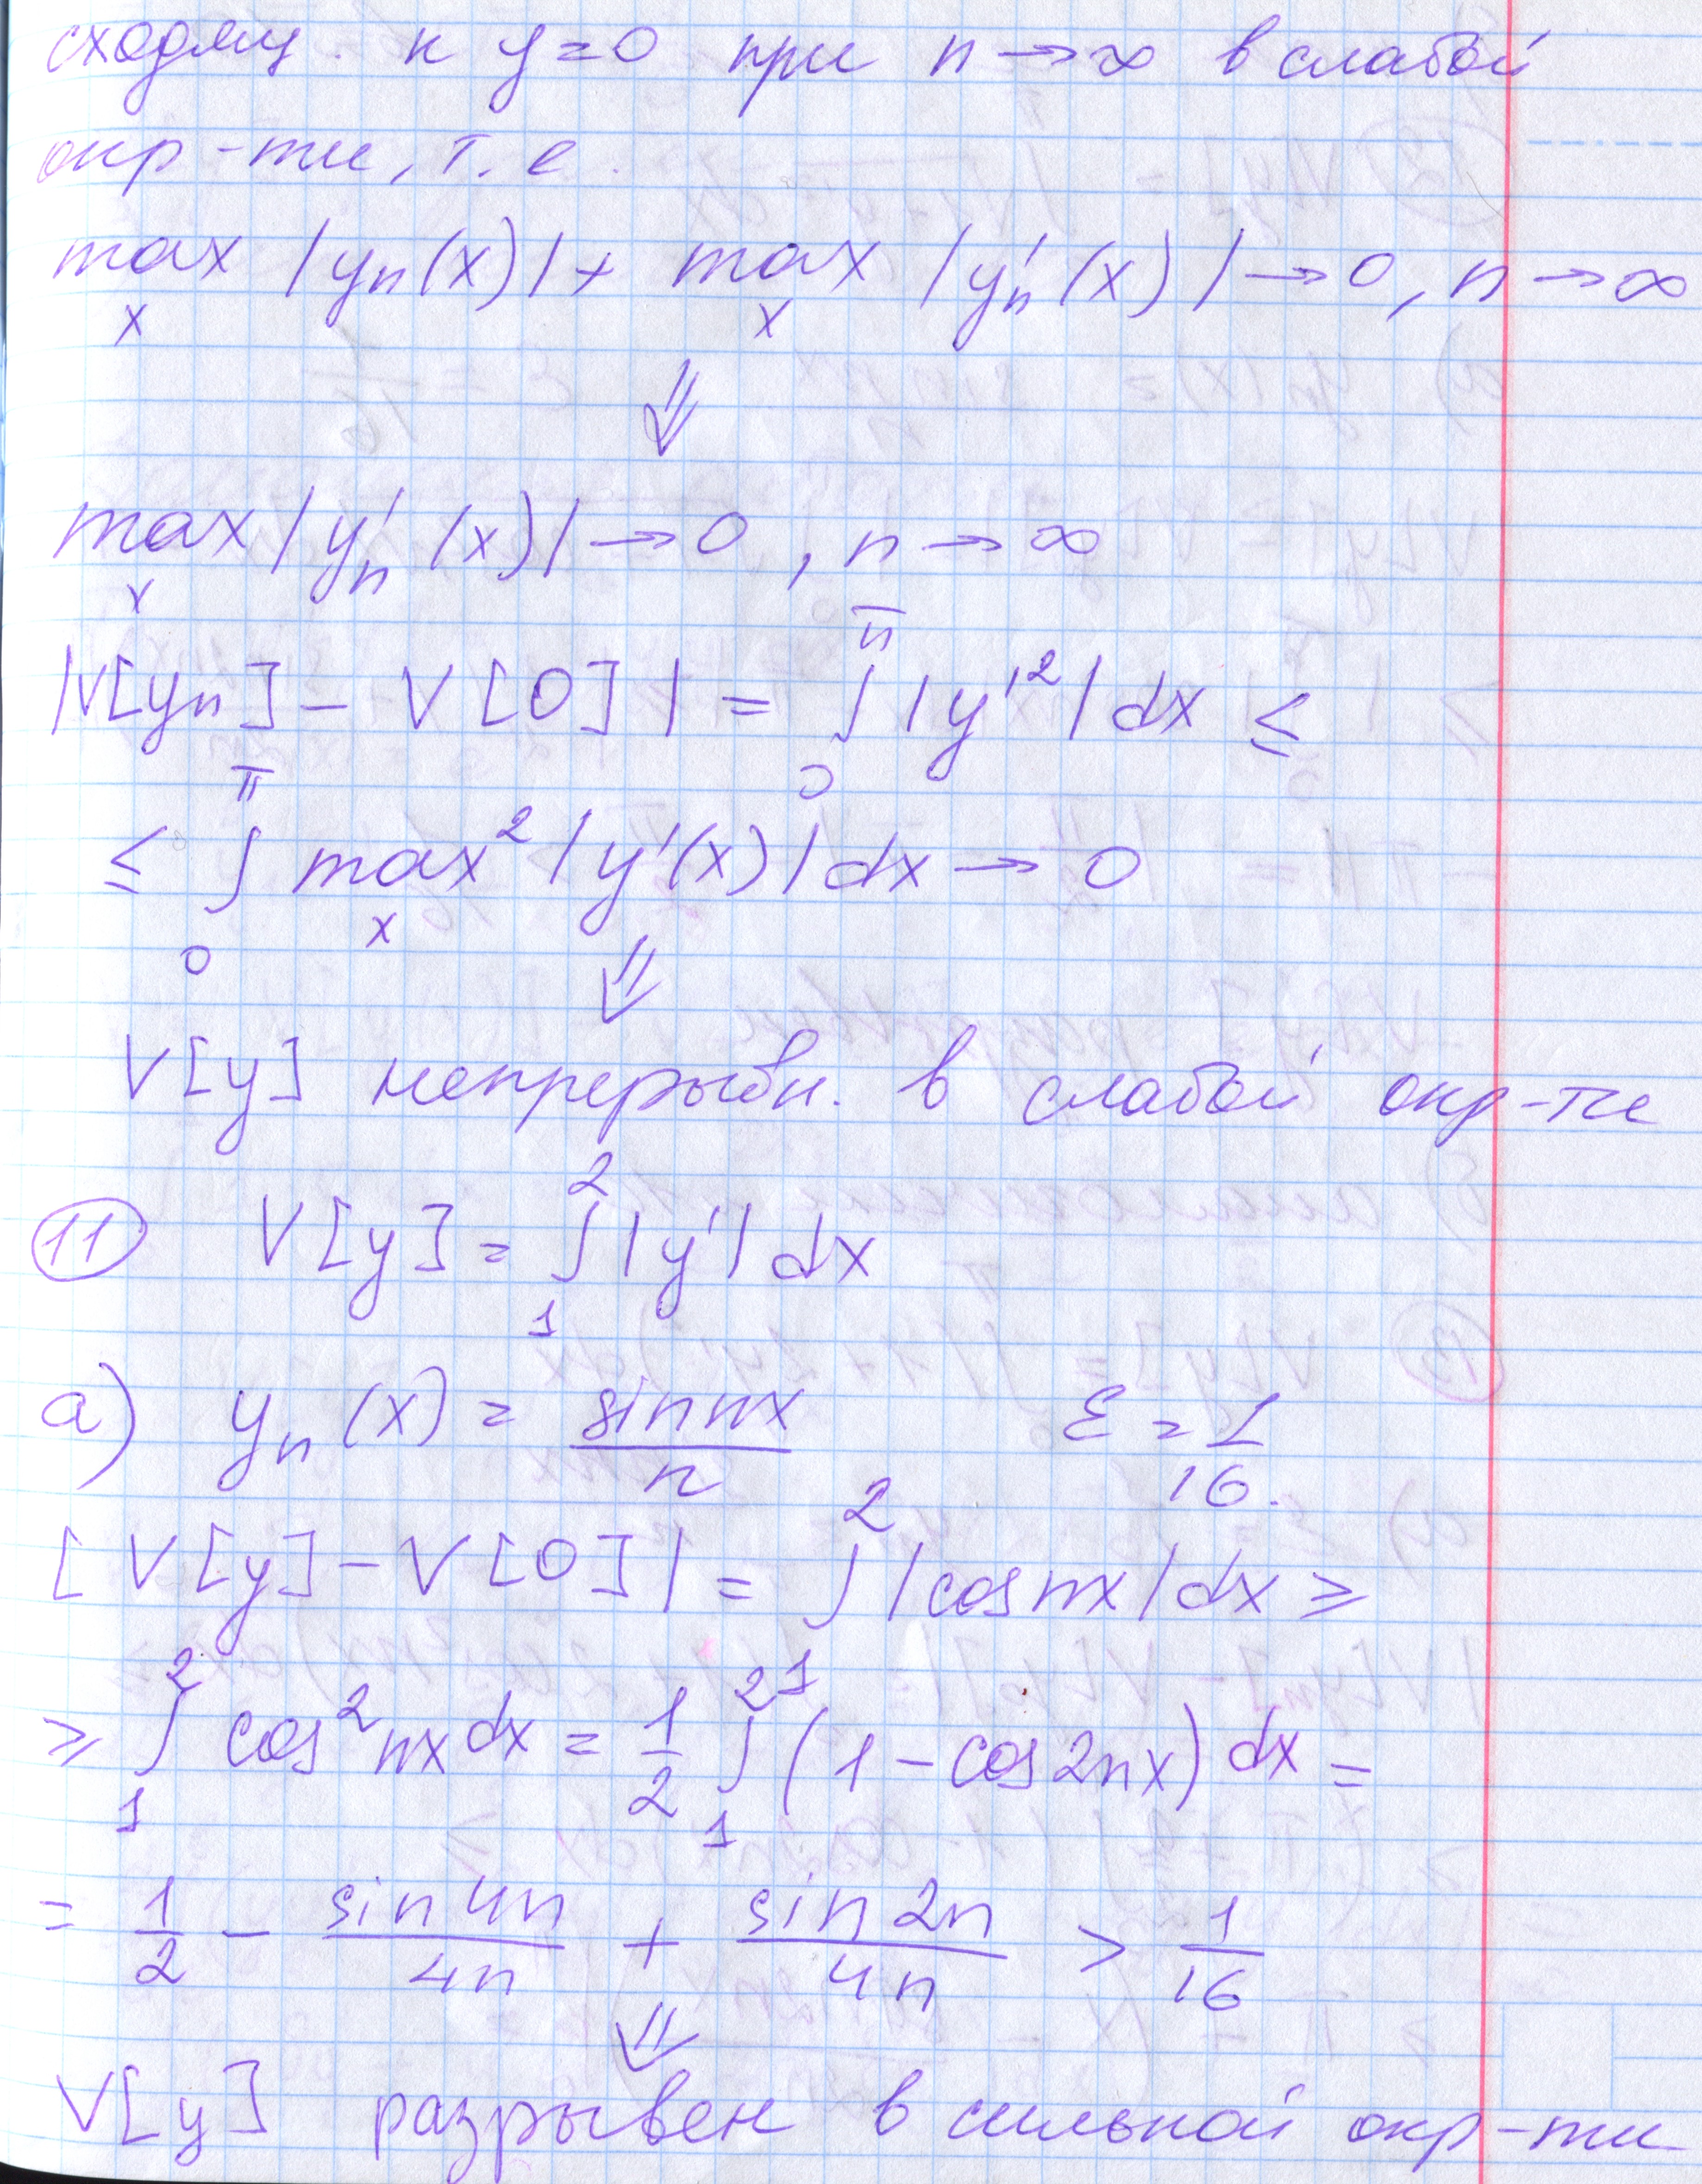 сходящ. к y=0 при n→∞ в слабой
окр-ти, т.е.
max |yn(x)| + max |y'n(x)| → 0, n→∞
x x
⇓
max |y'n(x)| → 0, n→∞
x
|V[yn] - V[0]| = ∫₀^π |y'²| dx ≤
≤ ∫₀^π max² |y'(x)| dx → 0
x
⇓
V[y] непрерывн. в слабой окр-ти
⑪ V[y] = ∫₁² |y'| dx
а) yn(x) = sin nx / n ε = 1/16.
[V[y] - V[0]| = ∫₁² |cos nx| dx ≥
≥ ∫₁² cos² nx dx = 1/2 ∫₁² (1 - cos 2nx) dx =
= 1/2 - sin 4n / 4n + sin 2n / 4n > 1/16
⇓
V[y] разрывен в сильной окр-ти